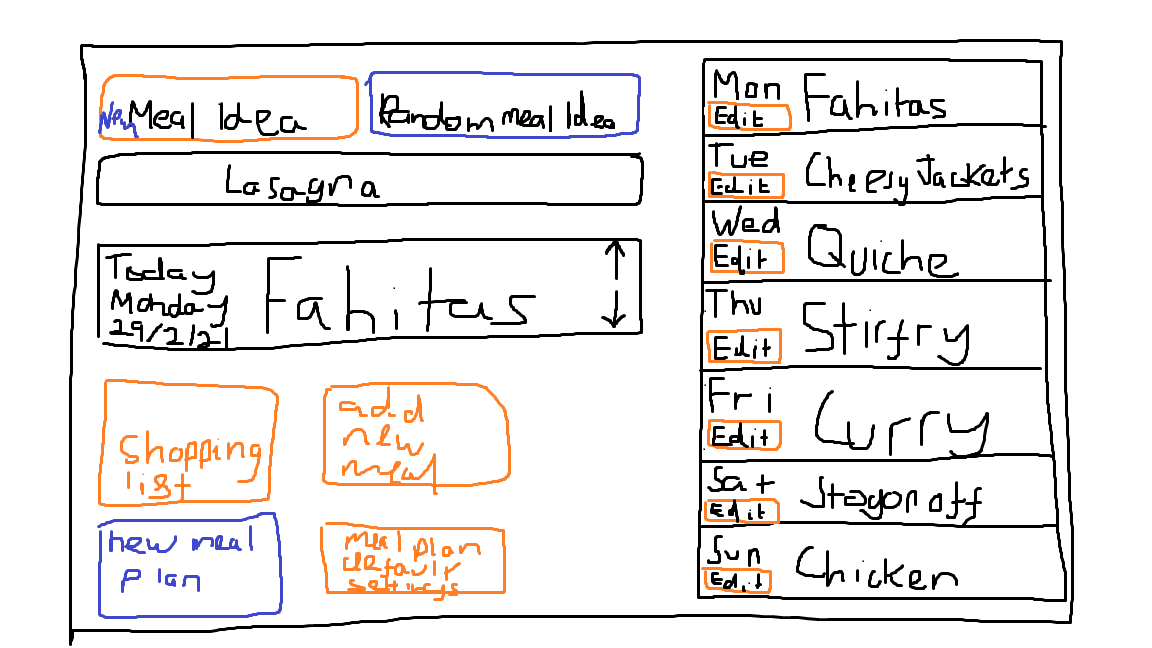 New Meal Idea
Random meal Idea
Lasagna
Today
Monday
29/2/21
Fahitas
Shopping
list
add
new
meal
new meal
plan
meal plan
default
settings
Mon
Edit
Fahitas
Tue
Edit
Cheesy Jackets
Wed
Edit
Quiche
Thu
Edit
Stirfry
Fri
Edit
Curry
Sat
Edit
Stagonoff
Sun
Edit
Chicken